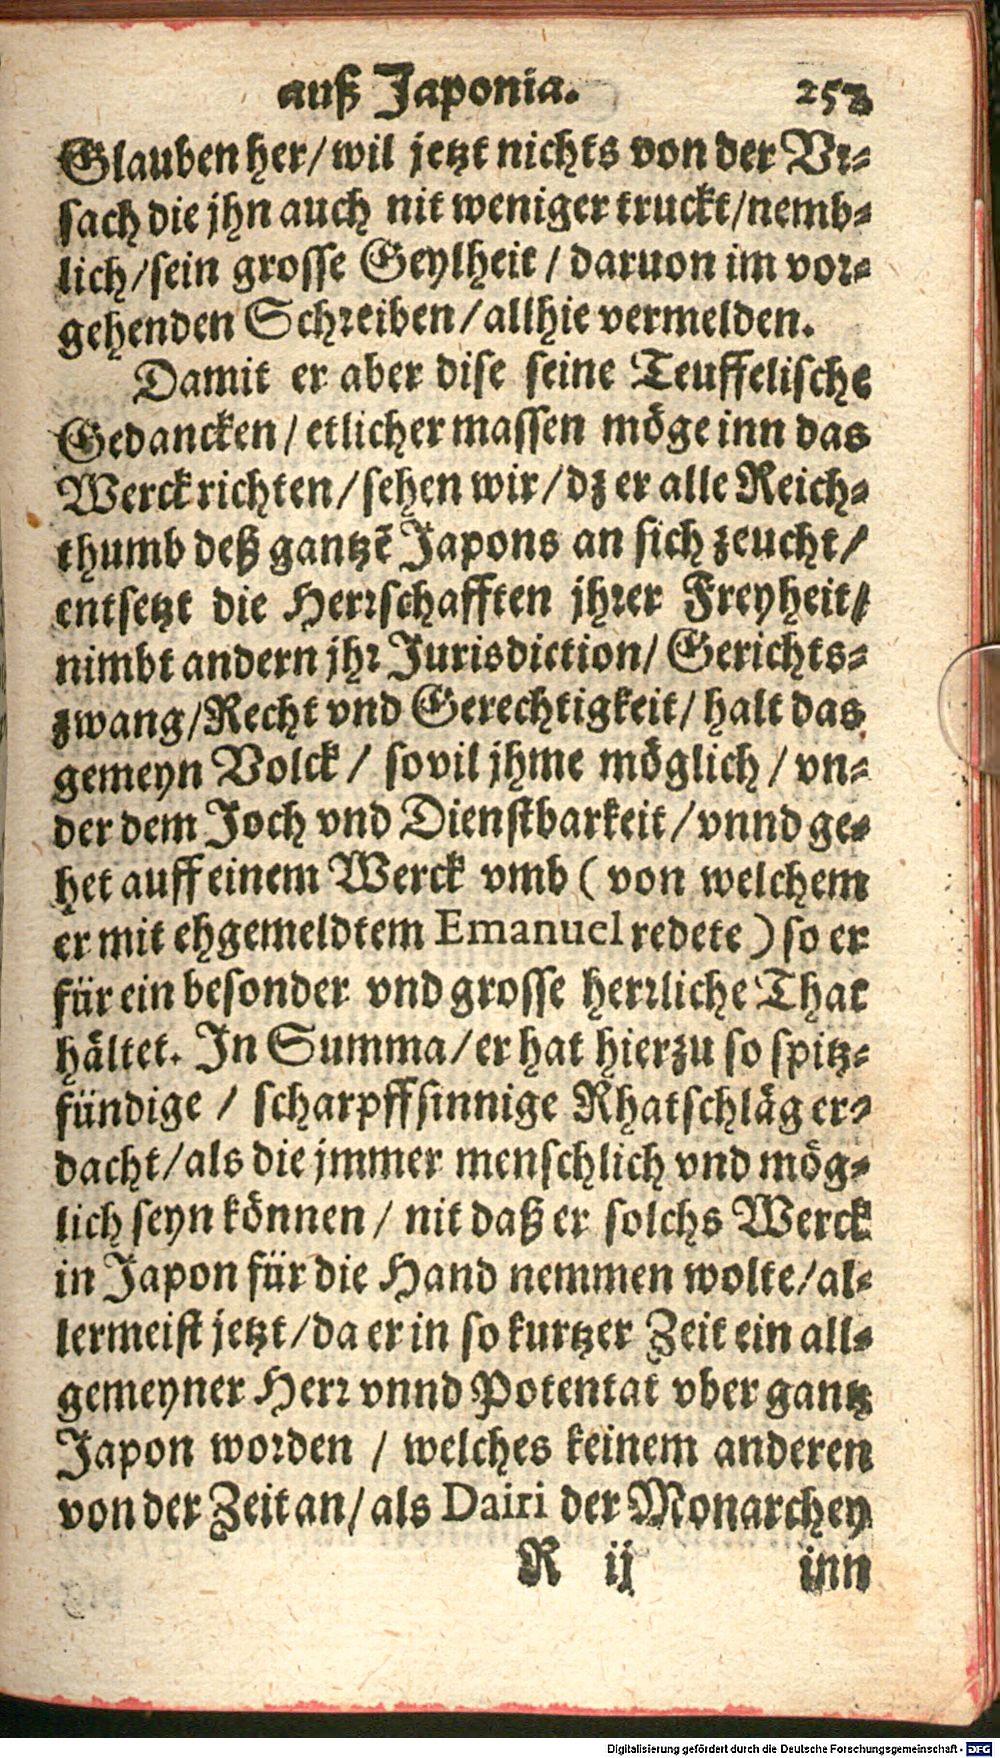 auß Japonia. 253
Glauben her/ wil jetzt nichts von der Vr-
sach die jhn auch nit weniger truckt/ nemb-
lich/ sein grosse Geylheit / daruon im vor-
gehenden Schreiben/ allhie vermelden.
Damit er aber dise seine Teuffelische
Gedancken/ etlicher massen möge inn das
Werck richten/ sehen wir/ dz er alle Reich-
thumb deß gantzē Japons an sich zeucht/
entsetzt die Herrschafften jhrer Freyheit/
nimbt andern jhr Jurisdiction/ Gerichts-
zwang/ Recht vnd Gerechtigkeit/ halt das
gemeyn Volck / sovil jhme möglich / vn-
der dem Joch vnd Dienstbarkeit/ vnnd ge-
het auff einem Werck vmb ( von welchem
er mit ehgemeldtem Emanuel redete ) so er
für ein besonder vnd grosse herrliche That
hältet. In Summa/ er hat hierzu so spitz-
fündige / scharpffsinnige Rhatschläg er-
dacht/ als die jmmer menschlich vnd mög-
lich seyn können / nit daß er solchs Werck
in Japon für die Hand nemmen wolte/ al-
lermeist jetzt/ da er in so kurtzer Zeit ein all-
gemeyner Herr vnnd Potentat vber gantz
Japon worden / welches keinem anderen
von der Zeit an/ als Dairi der Monarchey
R ij inn
Digitalisierung gefördert durch die Deutsche Forschungsgemeinschaft - DFG